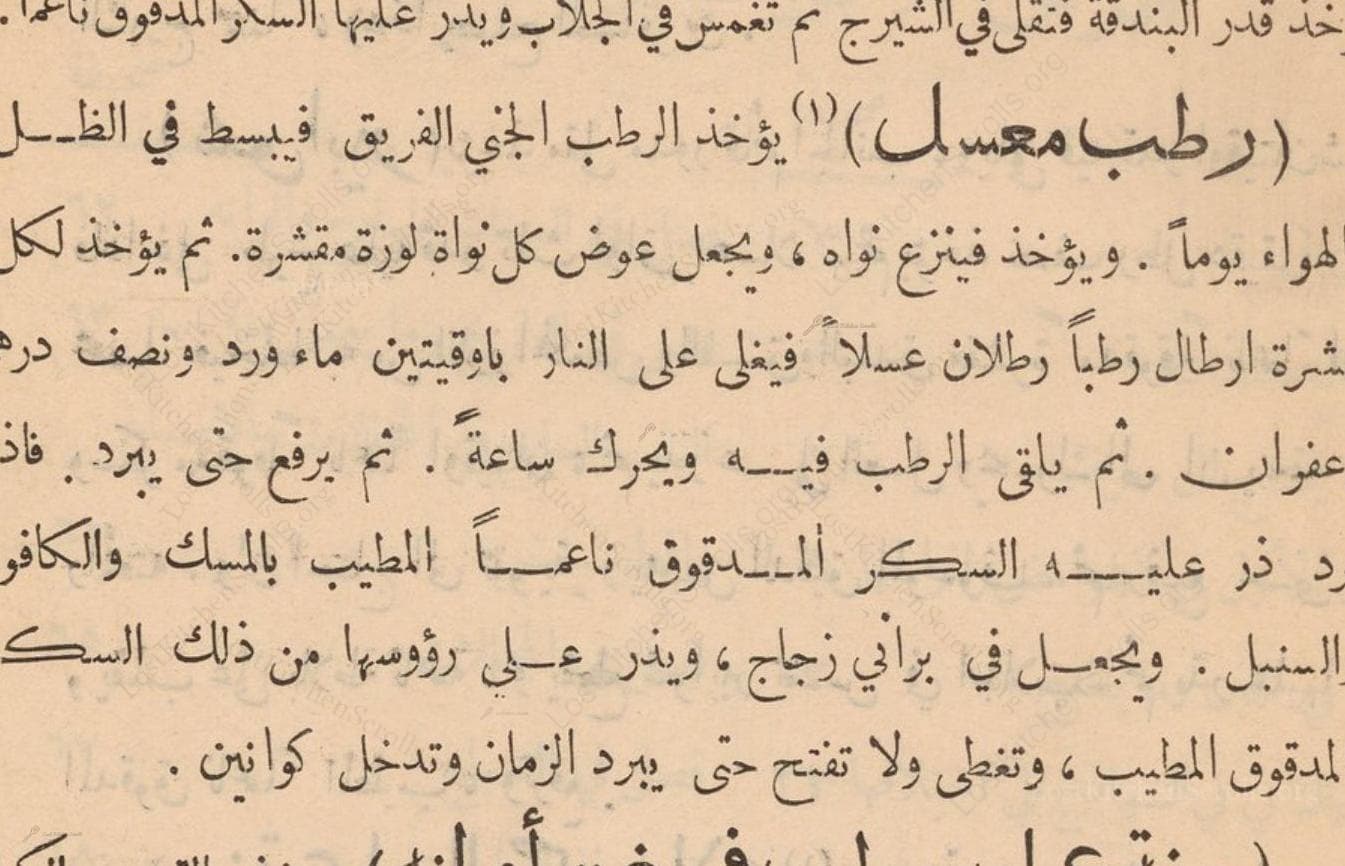 خذ قدر البندقة فتقلى في الشيرج ثم تغمس في الجلاب ويذر عليها السكر المدقوق ناعماً.
(رطب معسل)(١) يؤخذ الرطب الجني الفريق فيبسط في الظـل
لهواء يوماً . ويؤخذ فينزع نواه ، ويجعل عوض كل نواة لوزة مقشرة. ثم يؤخذ لكل
شرة ارطال رطباً رطلان عسلاً فيغلى على النار باوقيتين ماء ورد ونصف دره
عفران . ثم ياقى الرطب فيـه ويحرك ساعةً . ثم يرفع حتى يبرد . فاذ
رد ذر عليـه السكر المـدقوق ناعمـاً المطيب بالمسك والكافو
والسنبل . ويجعـل في براني زجاج ، ويذر عـلي رؤوسها من ذلك السكـ
لمدقوق المطيب ، وتغطى ولا تفتح حتى يبرد الزمان وتدخل كوانين .